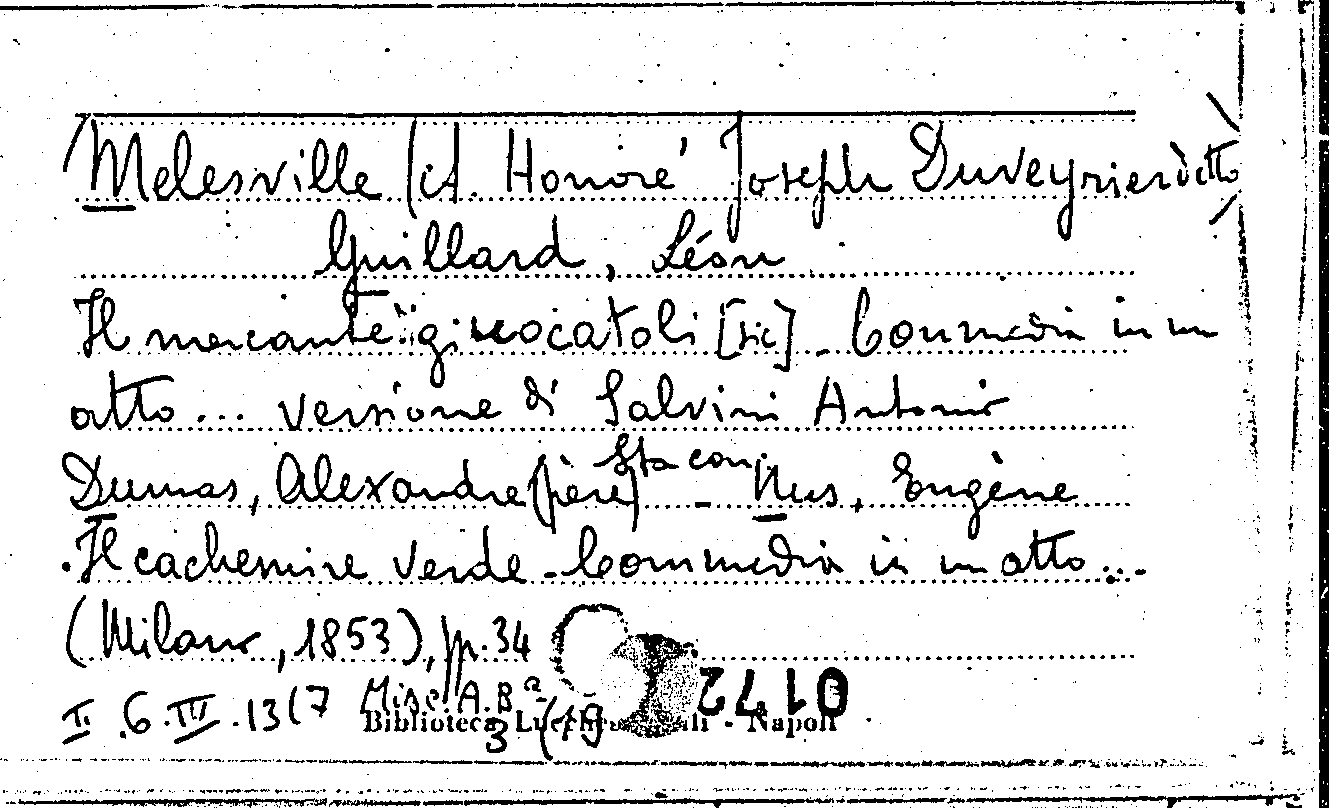 Melesville (cf. Honoré Joseph Duveyrier detto
Guillard, Léon
Il mercante giuocatoli [sic] - Commedia in un
atto... versione di Salvini Antonio
Sta con
Dumas, Alexandre (père) - Nus, Eugène
Il cachemire verde - Commedia in un atto...
(Milano, 1853), pp. 34
II. 6. III. 13(7 Misc. A. Bª
3 (19
Biblioteca - Napoli
0172